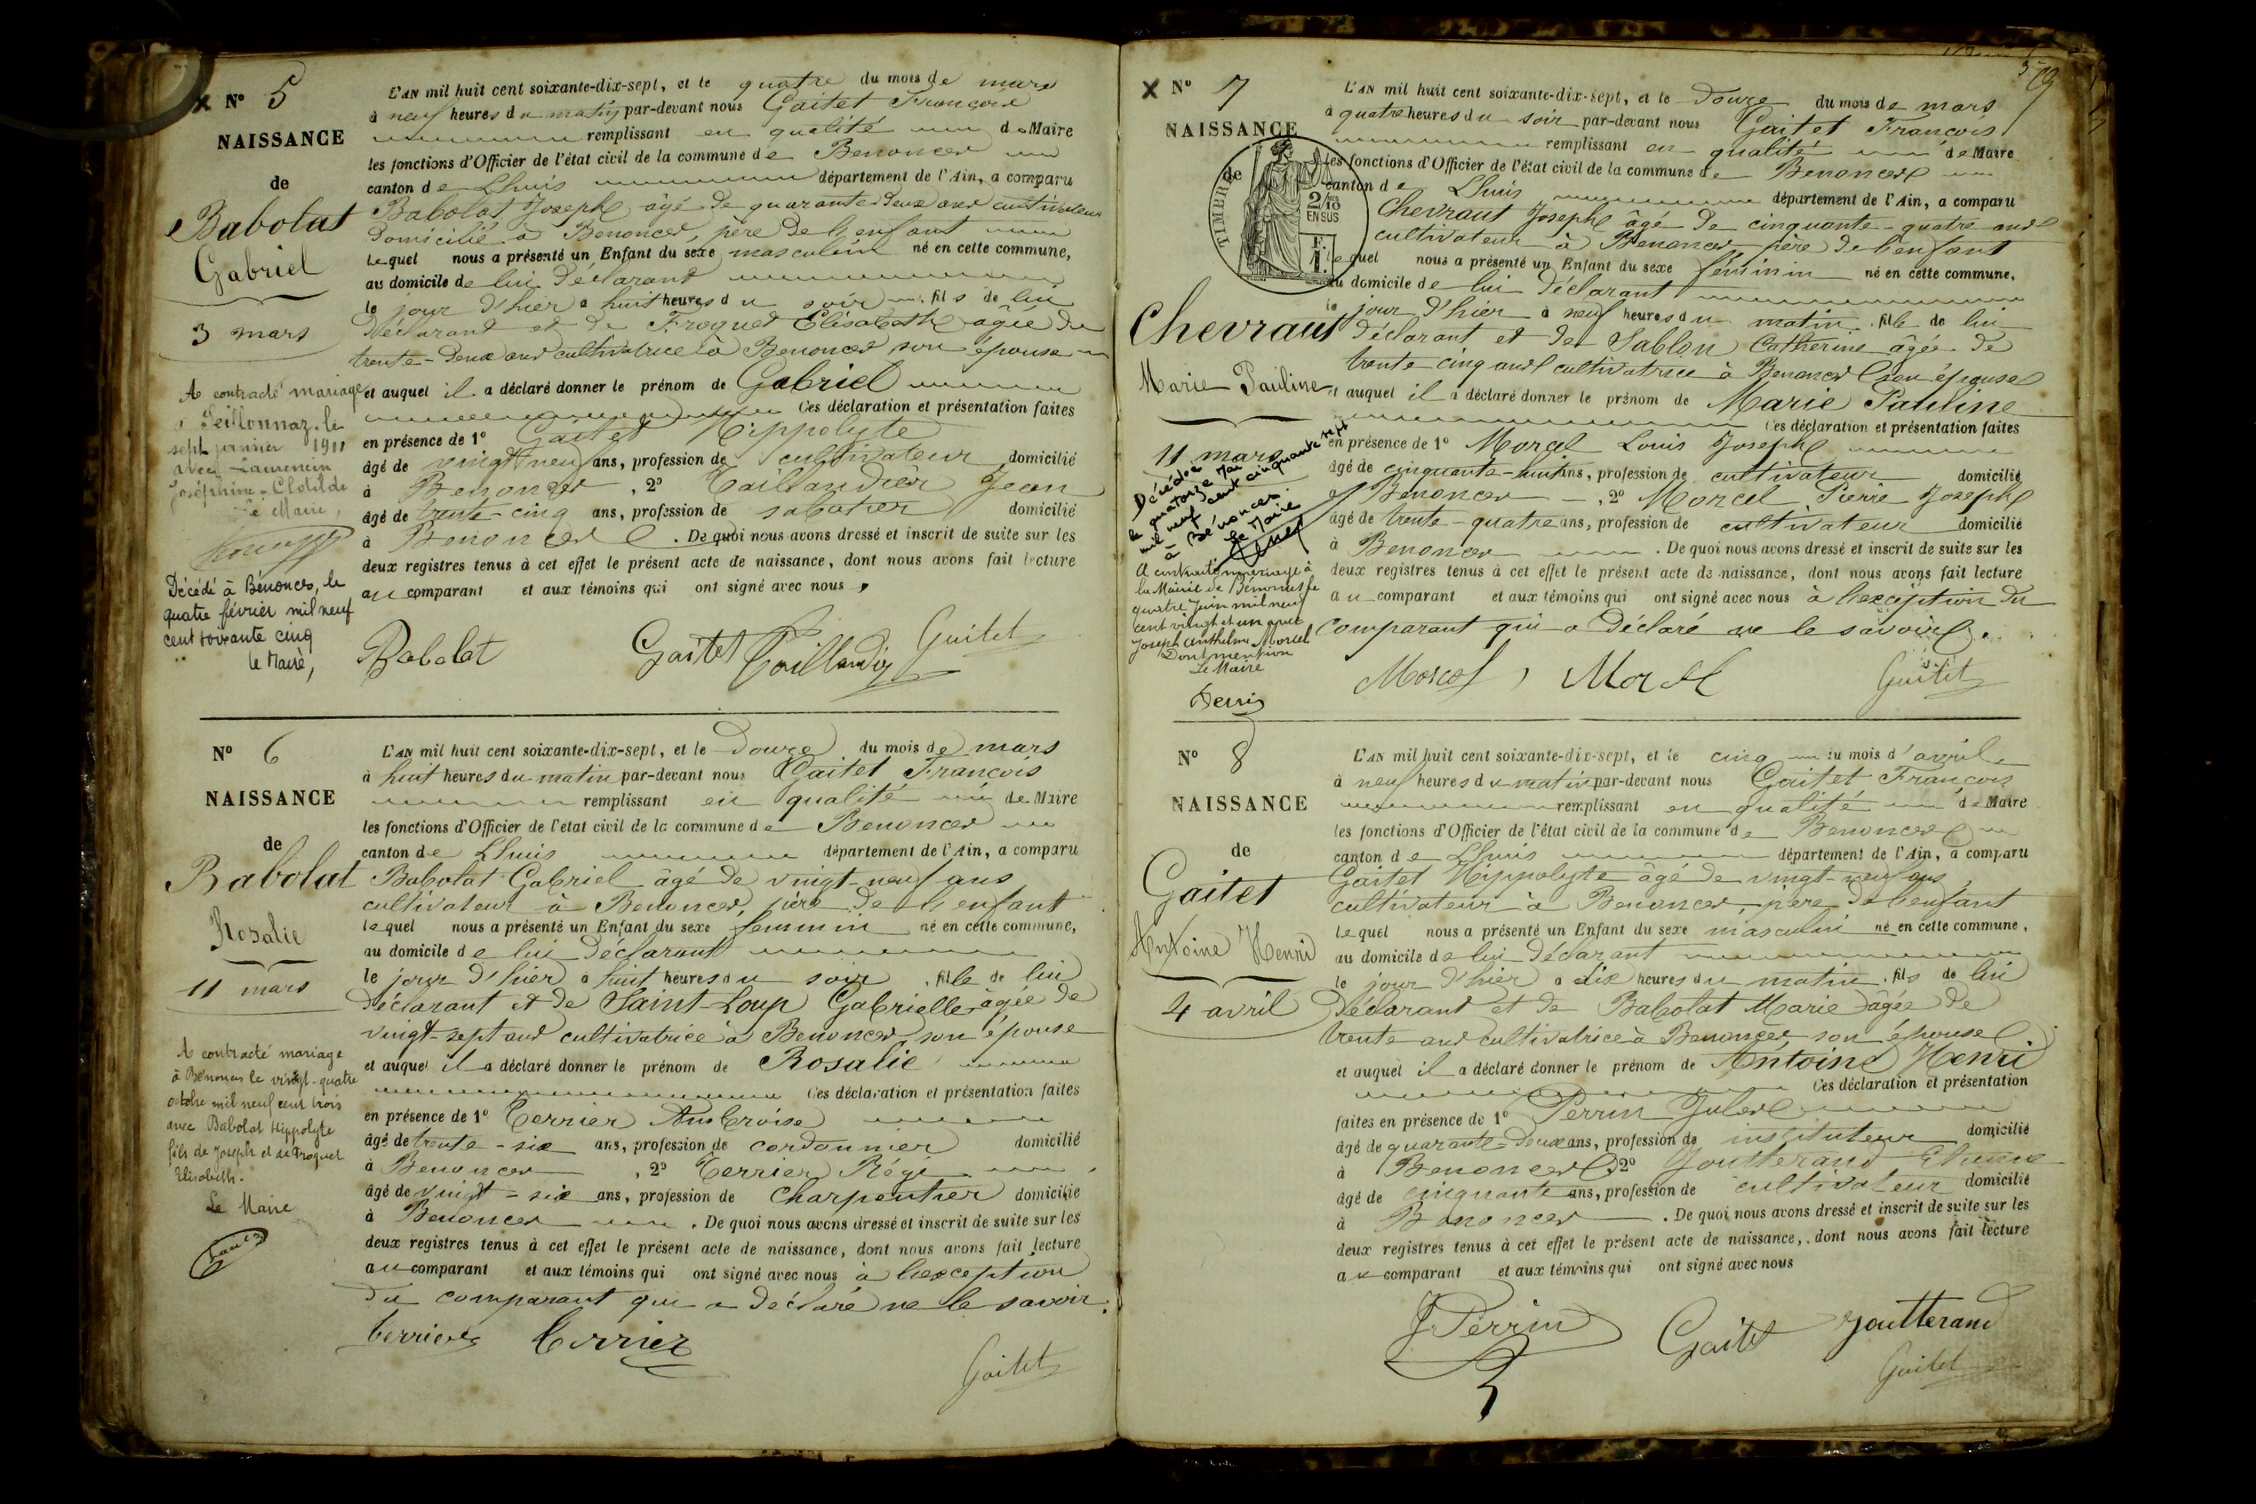 N° 5
NAISSANCE
de
Babolat
Gabriel
3 mars
A contracté mariage
à Seillonnaz le
sept janvier 1911
avec Laurencin
Joséphine-Clotilde
Le Maire,
Décédé à Bénonces, le
quatre février mil neuf
cent soixante cinq
le Maire,
L'AN mil huit cent soixante-dix-sept, et le quatre du mois de mars
à neuf heures du matin par-devant nous Gaitet François
remplissant en qualité de Maire
les fonctions d'Officier de l'état civil de la commune de Benonces
canton de Lhuis département de l'Ain, a comparu
Babolat Joseph âgé de quarante deux ans cultivateur
domicilié à Benonces, père de l'enfant
lequel nous a présenté un Enfant du sexe masculin né en cette commune,
au domicile de lui déclarant
le jour d'hier à huit heures du soir fils de lui
déclarant et de Froquet Elisabeth âgée de
trente-deux ans cultivatrice à Benonces son épouse
et auquel il a déclaré donner le prénom de Gabriel
Ces déclaration et présentation faites
en présence de 1° Gaitet Hippolyte
âgé de vingt neuf ans, profession de cultivateur domicilié
à Benonces, 2° Taillandier Jean
âgé de trente-cinq ans, profession de sabotier domicilié
à Benonces. De quoi nous avons dressé et inscrit de suite sur les
deux registres tenus à cet effet le présent acte de naissance, dont nous avons fait lecture
au comparant et aux témoins qui ont signé avec nous,
Babolat Gaitet Taillandier Gaitet
N° 6
NAISSANCE
de
Babolat
Rosalie
11 mars
A contracté mariage
à Bénonces le vingt-quatre
octobre mil neuf cent trois
avec Babolat Hippolyte
fils de Joseph et de Froquet
Elisabeth.
Le Maire
L'AN mil huit cent soixante-dix-sept, et le douze du mois de mars
à huit heures du matin par-devant nous Gaitet François
remplissant en qualité de Maire
les fonctions d'Officier de l'état civil de la commune de Benonces
canton de Lhuis département de l'Ain, a comparu
Babolat Gabriel âgé de vingt-neuf ans
cultivateur à Benonces, père de l'enfant
lequel nous a présenté un Enfant du sexe féminin né en cette commune,
au domicile de lui déclarant
le jour d'hier à huit heures du soir, fille de lui
déclarant et de Saint-Loup Gabrielle âgée de
vingt-sept ans cultivatrice à Benonces son épouse
et auquel il a déclaré donner le prénom de Rosalie
Ces déclaration et présentation faites
en présence de 1° Terrier Ambroise
âgé de trente-six ans, profession de cordonnier domicilié
à Benonces, 2° Terrier Régi
âgé de vingt-six ans, profession de charpentier domicilié
à Benonces. De quoi nous avons dressé et inscrit de suite sur les
deux registres tenus à cet effet le présent acte de naissance, dont nous avons fait lecture
au comparant et aux témoins qui ont signé avec nous à l'exception
du comparant qui a déclaré ne le savoir.
Terrier Terrier Gaitet
N° 7
NAISSANCE
de
TIMBRE
2/10
EN SUS
Chevraut
Marie Pauline
11 mars
Décédée
le quatorze Mai
mil neuf cent cinquante sept
à Bénonces.
Le Maire
A contracté mariage à
la Mairie de Bénonces le
quatre Juin mil neuf
cent vingt et un avec
Joseph Anthelme Morcel
Dont mention
Le Maire
Perrin
L'AN mil huit cent soixante-dix-sept, et le douze du mois de mars
à quatre heures du soir par-devant nous Gaitet François
remplissant en qualité de Maire
les fonctions d'Officier de l'état civil de la commune de Benonces
canton de Lhuis département de l'Ain, a comparu
Chevraut Joseph âgé de cinquante-quatre ans
cultivateur à Benonces père de l'enfant
lequel nous a présenté un Enfant du sexe féminin né en cette commune,
au domicile de lui déclarant
le jour d'hier à neuf heures du matin. fille de lui
déclarant et de Sablon Catherine âgée de
trente cinq ans cultivatrice à Benonces son épouse
et auquel il a déclaré donner le prénom de Marie Pauline
Ces déclaration et présentation faites
en présence de 1° Morcel Louis Joseph
âgé de cinquante-huit ans, profession de cultivateur domicilié
à Benonces, 2° Morcel Pierre Joseph
âgé de trente-quatre ans, profession de cultivateur domicilié
à Benonces. De quoi nous avons dressé et inscrit de suite sur les
deux registres tenus à cet effet le présent acte de naissance, dont nous avons fait lecture
au comparant et aux témoins qui ont signé avec nous à l'exception du
comparant qui a déclaré ne le savoir.
Morcel, Morcel Gaitet
N° 8
NAISSANCE
de
Gaitet
Antoine Henri
4 avril
L'AN mil huit cent soixante-dix-sept, et le cinq du mois d'avril
à neuf heures du matin par-devant nous Gaitet François
remplissant en qualité de Maire
les fonctions d'Officier de l'état civil de la commune de Benonces
canton de Lhuis département de l'Ain, a comparu
Gaitet Hippolyte âgé de vingt-neuf ans,
cultivateur à Benonces, père de l'enfant
lequel nous a présenté un Enfant du sexe masculin né en cette commune,
au domicile de lui déclarant
le jour d'hier à dix heures du matin. fils de lui
déclarant et de Babolat Marie âgée de
trente ans cultivatrice à Benonces son épouse
et auquel il a déclaré donner le prénom de Antoine Henri
Ces déclaration et présentation
faites en présence de 1° Perrin Jules
âgé de quarante-deux ans, profession de instituteur domicilié
à Benonces, 2° Joutterand Etienne
âgé de cinquante ans, profession de cultivateur domicilié
à Benonces. De quoi nous avons dressé et inscrit de suite sur les
deux registres tenus à cet effet le présent acte de naissance, dont nous avons fait lecture
au comparant et aux témoins qui ont signé avec nous
J Perrin Gaitet Joutterand
Gaitet